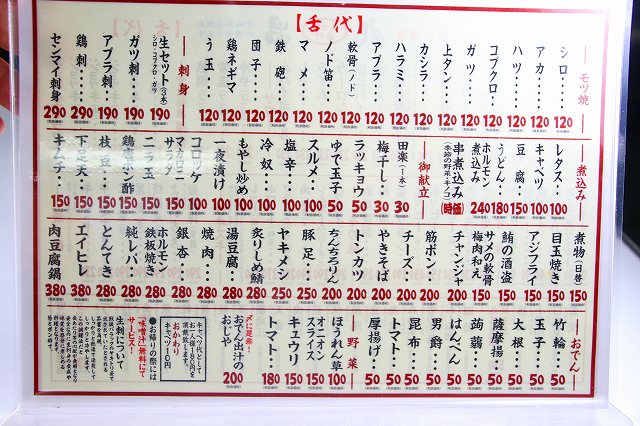 【舌代】
モツ焼
シロ 120
アカ 120
ハツ 120
コブクロ 120
ガツ 120
上タン 120
カシラ 120
ハラミ 120
アブラ 120
軟骨(ノド) 120
ノド笛 120
マメ 120
鉄砲 120
団子 120
鶏ネギマ 120
う玉 120
刺身
生セット(3本) 190
シロ・コブクロ・ガツ
ガツ刺 190
アブラ刺 190
鶏刺 290
センマイ刺身 290
煮込み
レタス 100
キャベツ 100
豆腐 100
うどん 150
ホルモン煮込み 180
串煮込み 240
(時価)
御献立
田楽(一本) 30
梅干し 30
ラッキョウ 50
ゆで玉子 50
スルメ 100
塩辛 100
冷奴 100
もやし炒め 100
一夜漬け 100
コロッケ 100
マカロニサラダ 150
ニラ玉 150
鶏皮ポン酢 150
枝豆 150
下足天 150
キムチ 150
煮物(一日替) 150
目玉焼き 150
アジフライ 150
鮪の酒盗 150
サメの軟骨梅肉和え 150
チャンジャ 200
筋ポン 200
チーズ 200
やきそば 200
トンカツ 200
ちんちろりん 200
豚足 250
ヤキメシ 250
炙りしめ鯖 250
湯豆腐 280
焼肉 280
銀杏 280
ホルモン鉄板焼き 280
純レバ 280
とんてき 380
エイヒレ 380
肉豆腐鍋 380
おでん
竹輪 50
玉子 50
大根 50
薩摩揚 50
蒟蒻 50
はんぺん 50
男爵 50
昆布 50
トマト 50
厚揚げ 50
野菜
ほうれん草 100
オニオンスライス 150
キュウリ 150
トマト 180
〆に是非!
おでん出汁のおじや 200
キャベツ代としてお一人様80円を頂戴致します。
おかわりキャベツ0円
●お帰りの際には「味噌汁」無料にてサービス!
生刺について